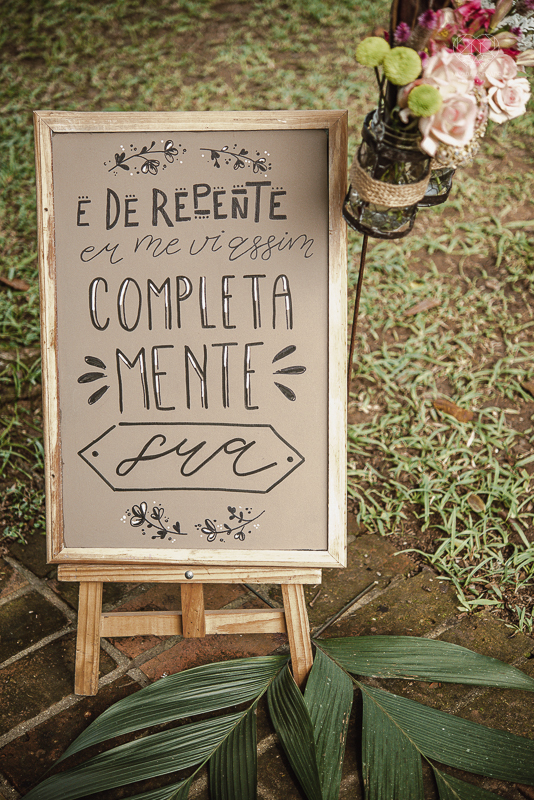 E DE REPENTE
eu me vi assim
COMPLETA
MENTE
sua